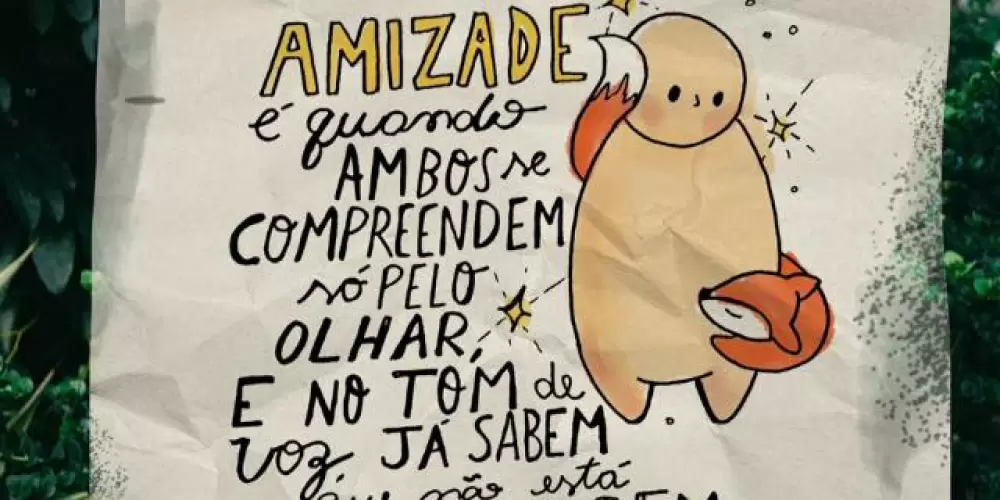 AMIZADE
é quando
AMBOS se
COMPREENDEM
só PELO
OLHAR,
E NO TOM de
voz, JÁ SABEM
que não está
BEM